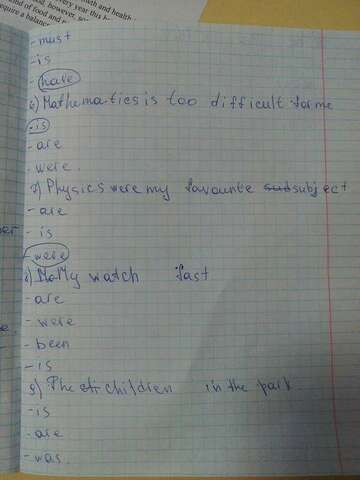 every year this b
th and health
kind of food and e
, however, so
require a balanc
-must
-is
-have
6) Mathematics is too difficult for me
-is
-are
-were.
7) Physics were my favourite subject
-are
-is
-were
8) My watch fast
-are
-were
-been
-is
9) The children in the park.
-is
-are
-was.